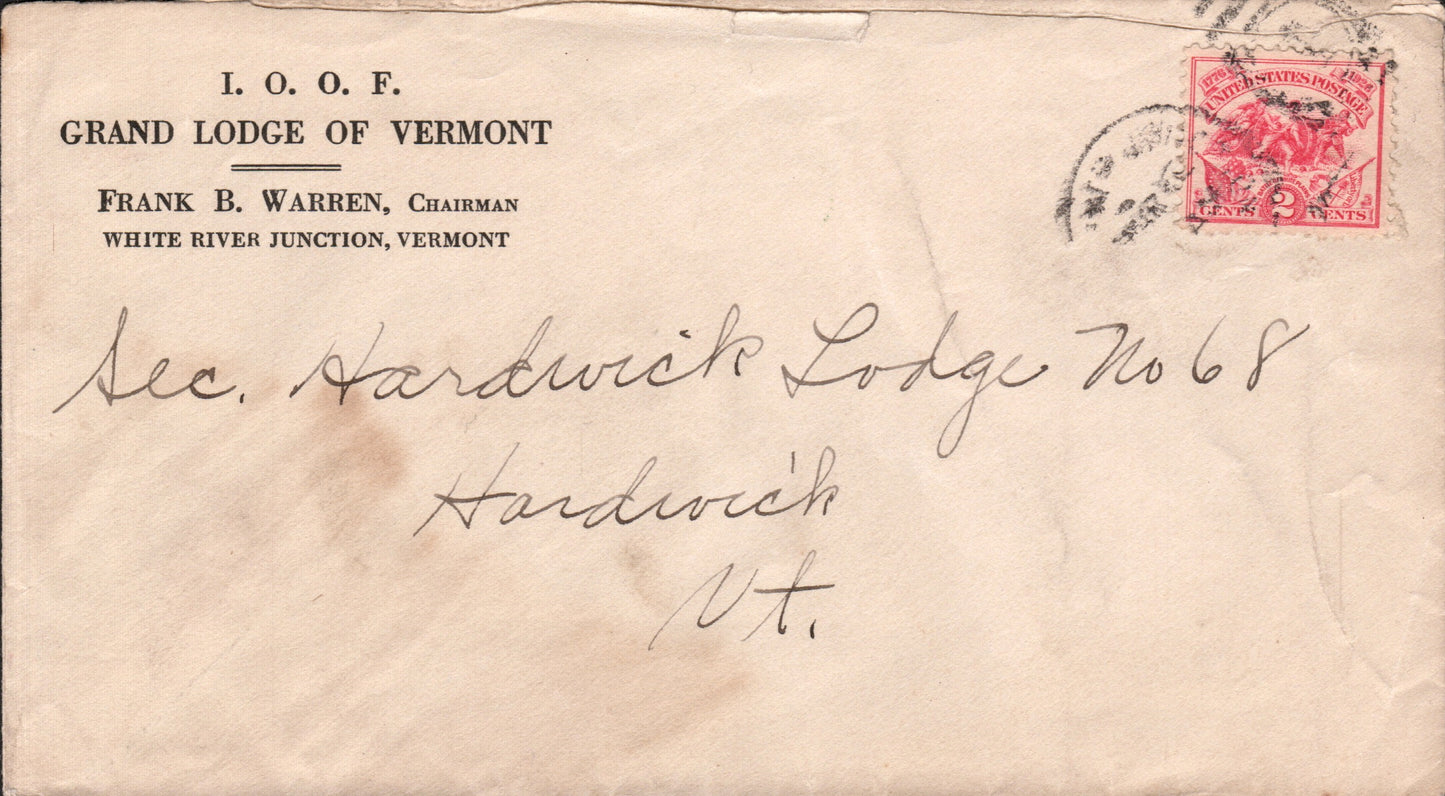 I. O. O. F.
GRAND LODGE OF VERMONT
FRANK B. WARREN, CHAIRMAN
WHITE RIVER JUNCTION, VERMONT
1776 1926
UNITED STATES POSTAGE
CENTS 2 CENTS
Sec. Hardwick Lodge No 68
Hardwick
Vt.